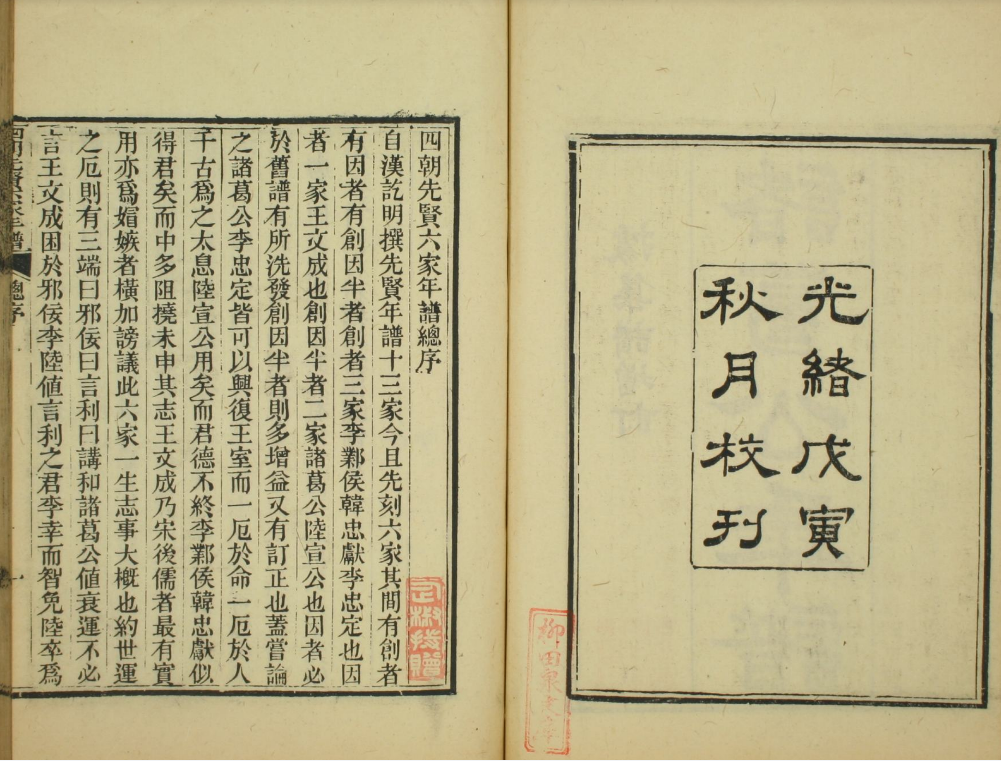 光緒戊寅
秋月校刊
四朝先賢六家年譜總序
自漢訖明撰先賢年譜十三家今且先刻六家其間有創者
有因者有創因半者創者三家李鄴侯韓忠獻李忠定也因
者一家王文成也創因半者二家諸葛公陸宣公也因者必
於舊譜有所洗發創因半者則多增益又有訂正也蓋嘗論
之諸葛公李忠定皆可以興復王室而一厄於命一厄於人
千古爲之太息陸宣公用矣而君德不終李鄴侯韓忠獻似
得君矣而中多阻撓未申其志王文成乃宋後儒者最有實
用亦爲媢嫉者橫加謗議此六家一生志事大槪也約世運
之厄則有三端曰邪佞曰言利曰講和諸葛公値衰運不必
言王文成困於邪佞李陸値言利之君李幸而智免陸卒爲
四朝先賢六家年譜
總序
一
柳田泉文庫